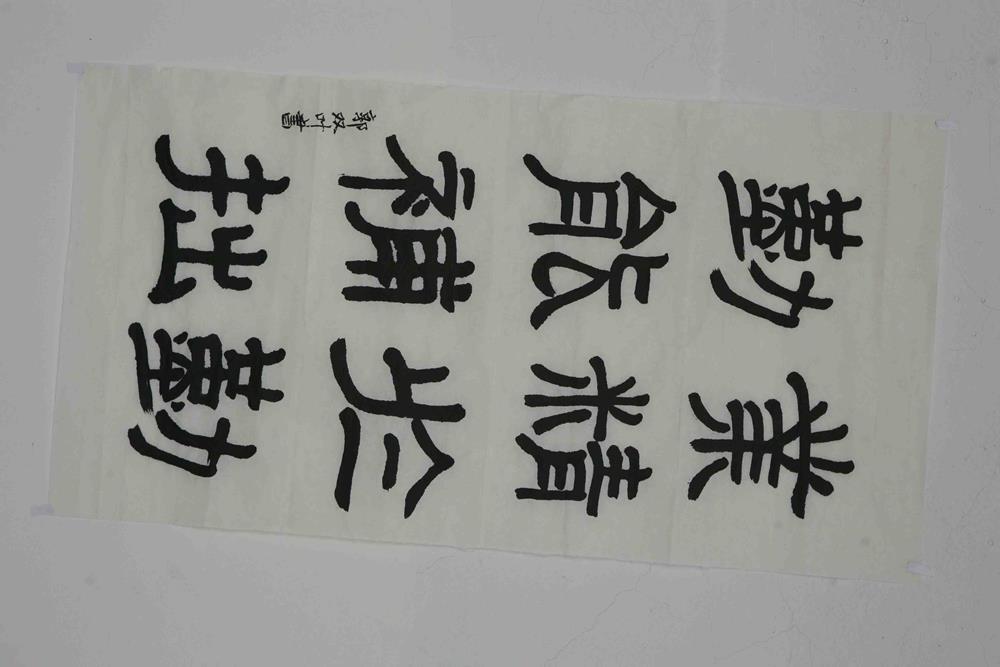 業精於勤
勤能補拙
郭双叶書